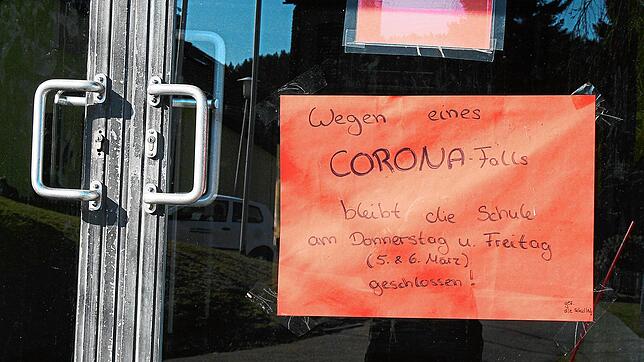 Wegen eines
CORONA-Falls
bleibt die Schule
am Donnerstag u. Freitag
(5. & 6. März)
geschlossen!
gez.